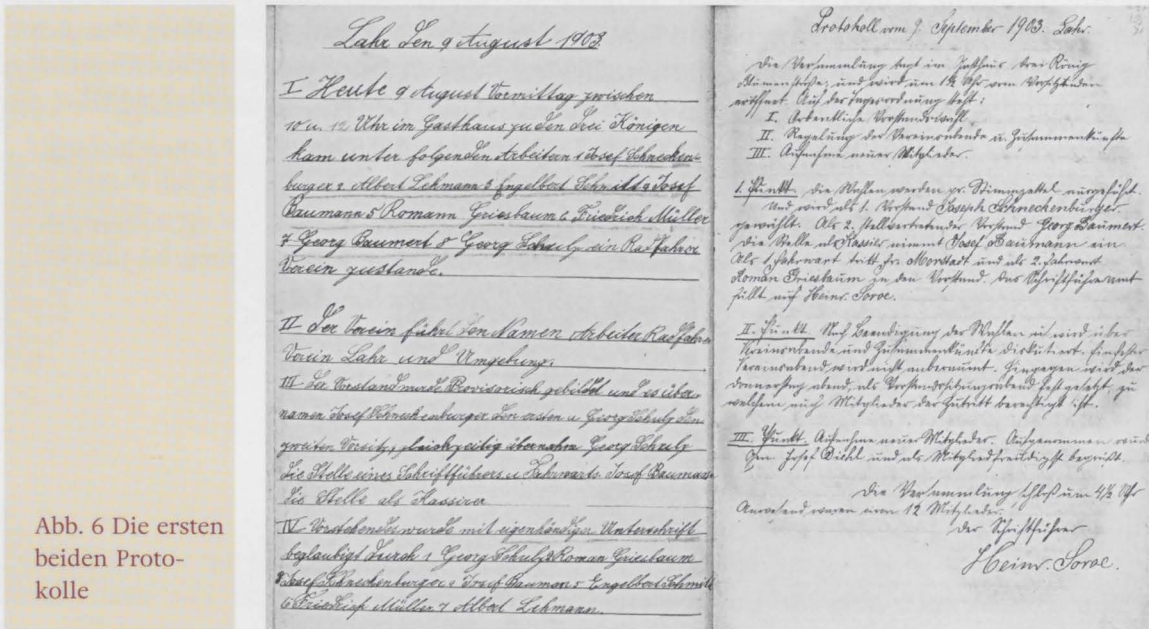 Lahr den 9 August 1903.
I Heute 9 August Vormittag zwischen
10 u. 12 Uhr im Gasthaus zu den drei Königen
kam unter folgenden Arbeitern 1 Josef Schnecken-
burger 2 Albert Lehmann 3 Engelbert Schmitt 4 Josef
Baumann 5 Romann Griesbaum 6 Friedrich Müller
7 Georg Baumert 8 Georg Schulz ein Radfahrer
Verein zustande.
II Der Verein führt den Namen Arbeiter Radfahrer
Verein Lahr und Umgebung.
III Der Vorstand wurde Provisorisch gebildet und es über-
namen Josef Schneckenburger den ersten u. Georg Schulz den
zweiten Vorsitz, gleichzeitig übernahm Georg Schulz
die Stelle eines Schriftführers u. Fahrwarts Josef Baumann
die Stelle als Kassirer
IV Vorstehendes wurde mit eigenhändiger Unterschrift
beglaubigt durch 1 Georg Schulz 2 Roman Griesbaum
3 Josef Schneckenburger 4 Josef Bauman 5 Engelbert Schmitt
6 Friedrich Müller 7 Albert Lehmann.
Protokoll vom 9. September 1903. Lahr.
Die Versammlung tagt im Gasthaus drei König
und wird um Uhr vom Vorsitzenden
eröffnet. Auf der Tagesordnung steht:
I. Ordentliche Vorstandswahl
II. Regelung der Vereinsabende u. Zusammenkünfte
III. Aufnahme neuer Mitglieder.
1. Punkt. Die Wahlen werden pr. Stimmzettel ausgeführt.
Und wird als 1. Vorstand Joseph Schneckenburger
gewählt. Als 2. stellvertretender Vorstand Georg Baumert.
Die Stelle als Kassier nimmt Josef Baumann ein.
Als 1. Fahrwart tritt Morstadt und als 2. Fahrwart
Roman Griesbaum in den Vorstand. Das Schriftführeramt
füllt auf Heinr. Sorve.
II. Punkt. Nach Beendigung der Wahlen wird über
Vereinsabende und Zusammenkünfte diskutiert. Ein fester
Vereinsabend wird nicht anberaumt. Hingegen wird der
Donnerstag abend, als Vorstandssitzungsabend festgesetzt, zu
welchem auch Mitglieder der Zutritt berechtigt ist.
III. Punkt. Aufnahme neuer Mitglieder. Aufgenommen
Josef und als Mitglied freudigst begrüßt.
Die Versammlung schloß um 4½ Uhr
Anwesend waren 12 Mitglieder.
Der Schriftführer
Heinr. Sorve.
Abb. 6 Die ersten
beiden Proto-
kolle